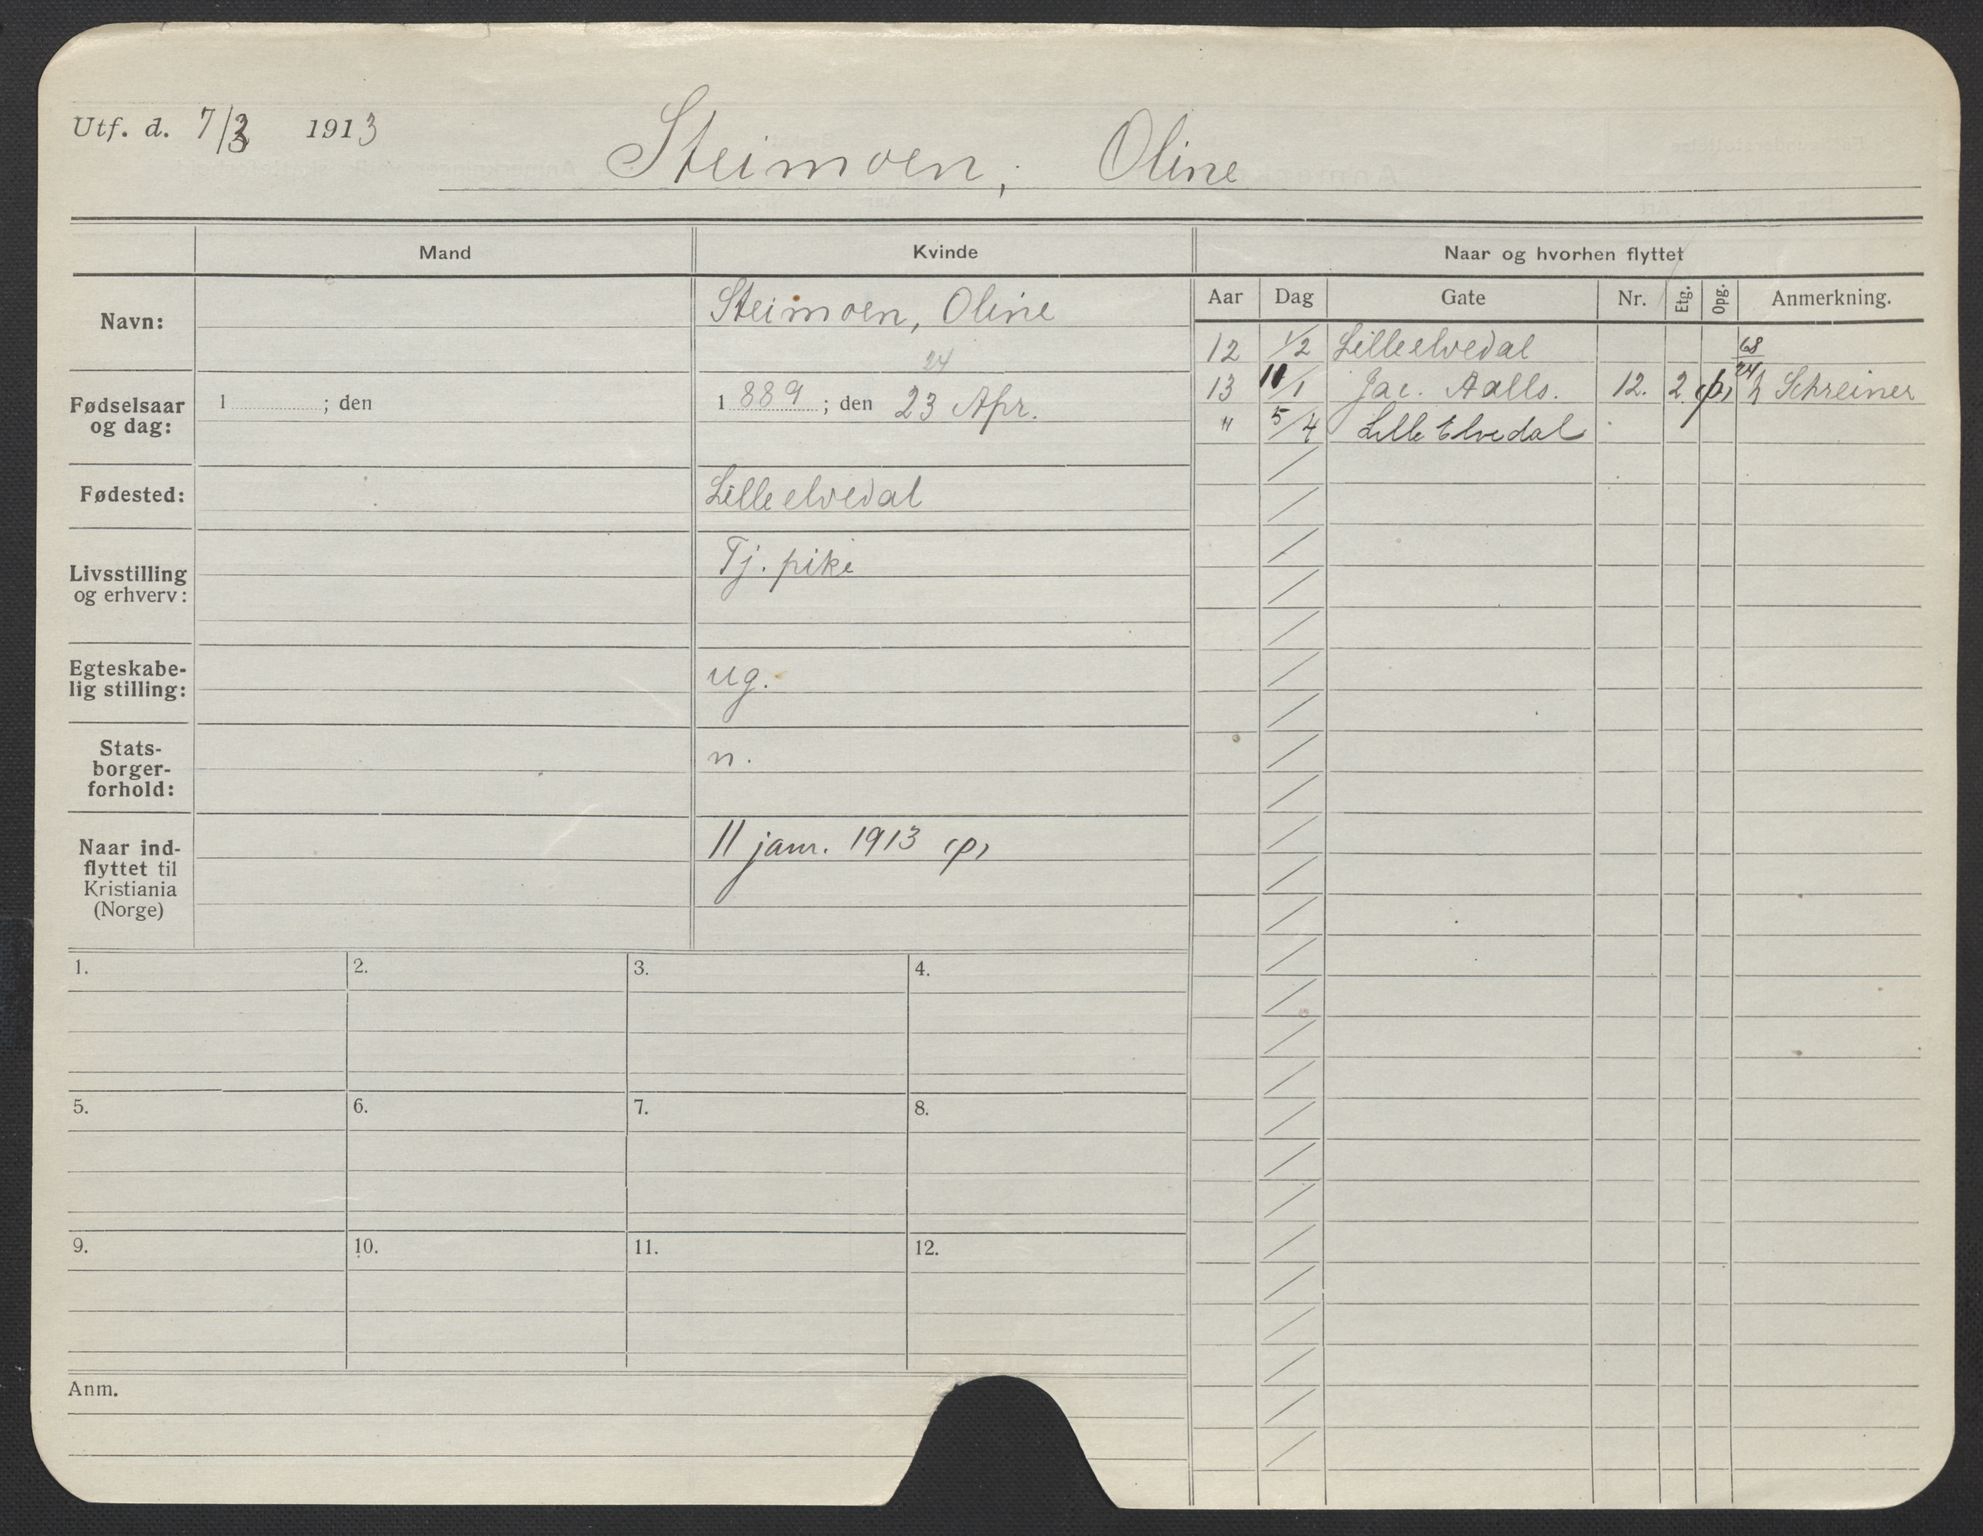 Utf. d. 7/3 1913
Steimoen, Oline
Mand
Kvinde
Naar og hvorhen flyttet
Navn:
Steimoen, Oline
Fødselsaar
og dag:
1 ; den
24
1 889 ; den 23 Apr.
Fødested:
Lilleelvedal
Livsstilling
og erhverv:
Tj. pike
Egteskabe-
lig stilling:
ug.
Stats-
borger-
forhold:
n.
Naar ind-
flyttet til
Kristiania
(Norge)
11 janr. 1913 (p)
Aar Dag Gate Nr. Etg. Opg. Anmerkning.
12 1/2 Lilleelvedal 68/24
13 11/1 Jac. Aalls. 12. 2 (p) Schreiner
" 5/4 Lille Elvedal
1. 2. 3. 4.
5. 6. 7. 8.
9. 10. 11. 12.
Anm.